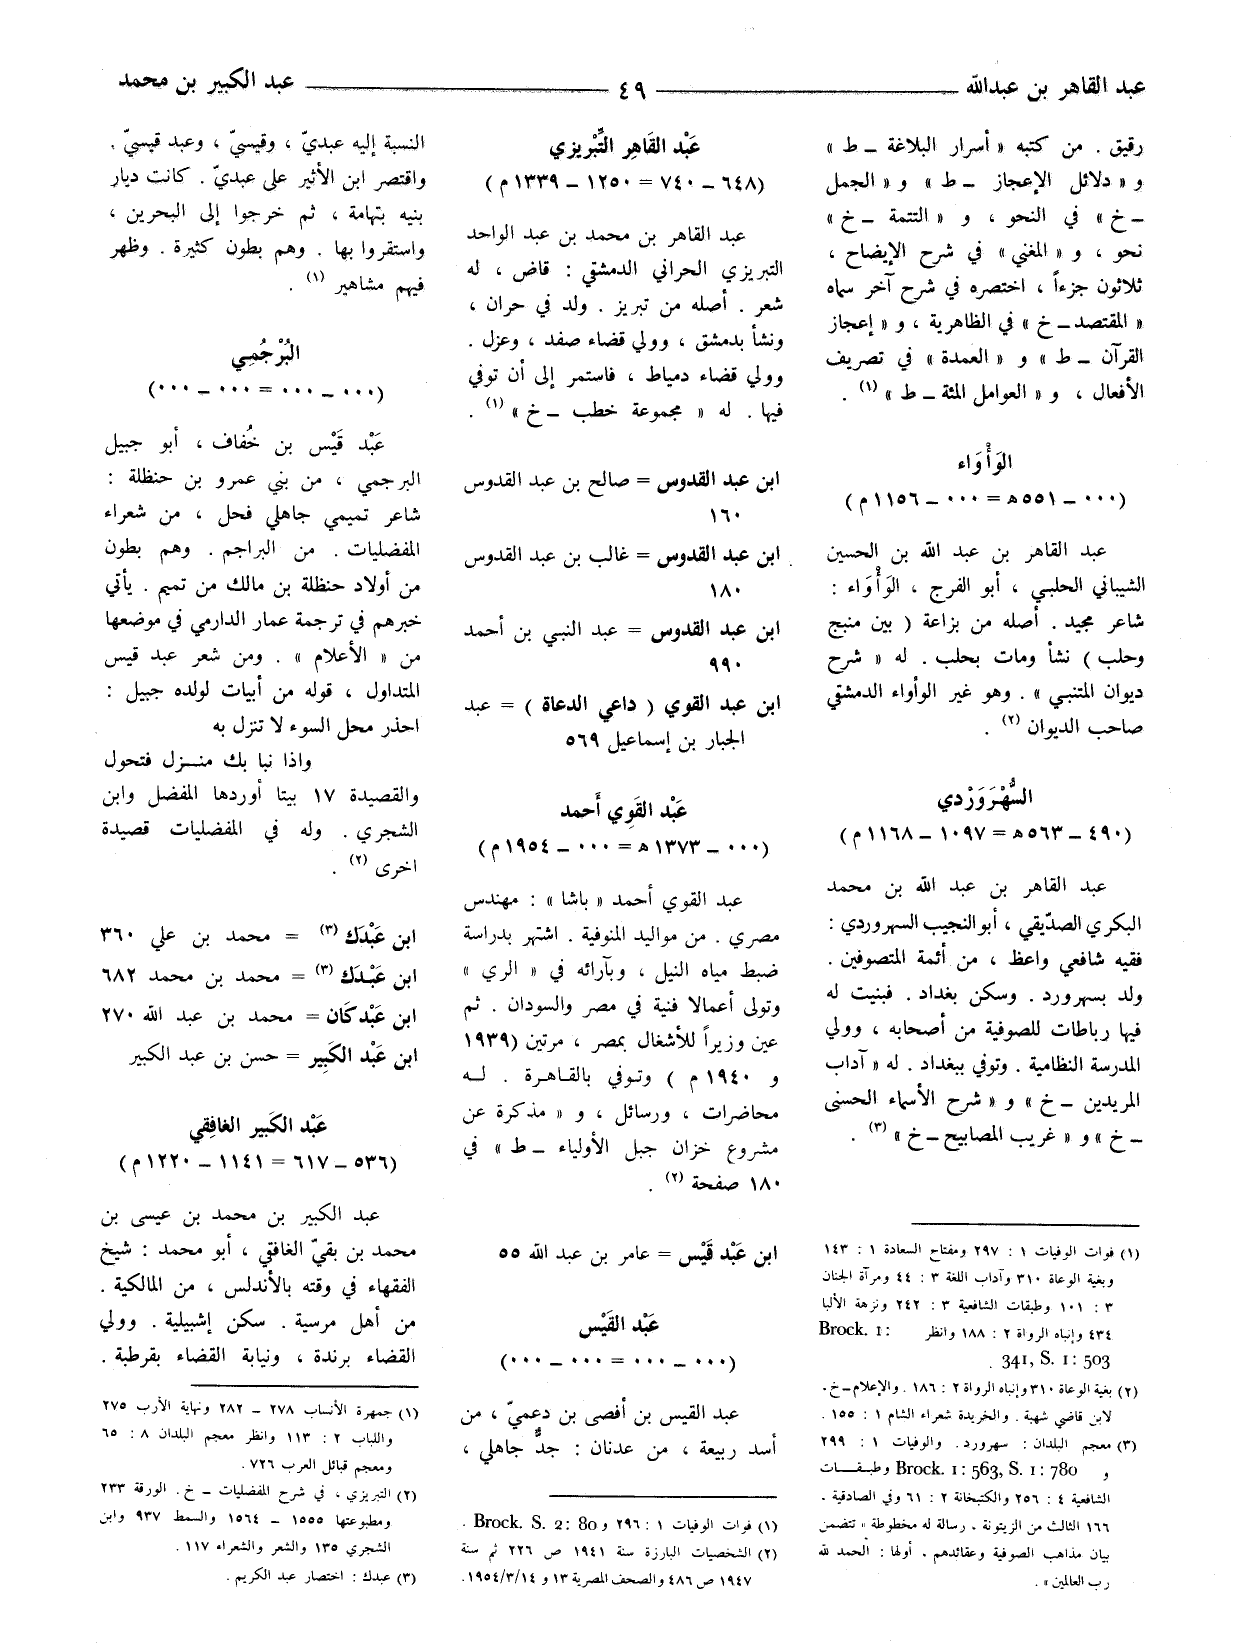 عبد القاهر بن عبدالله
٤٩
عبد الكبير بن محمد
رقيق . من كتبه « أسرار البلاغة ـ ط »
و « دلائل الإعجاز ـ ط » و « الجمل
ـ خ » في النحو ، و « التتمة ـ خ »
نحو ، و « المغني » في شرح الإيضاح ،
ثلاثون جزءاً ، اختصره في شرح آخر سماه
« المقتصد ـ خ » في الظاهرية ، و « إعجاز
القرآن ـ ط » و « العمدة » في تصريف
الأفعال ، و « العوامل المئة ـ ط » (١) .
الوَأْوَاء
(٠٠٠ ـ ٥٥١ ه = ٠٠٠ ـ ١١٥٦ م)
عبد القاهر بن عبد الله بن الحسين
الشيباني الحلبي ، أبو الفرج ، الوَأْوَاء :
شاعر مجيد . أصله من بزاعة ( بين منبج
وحلب ) نشأ ومات بحلب . له « شرح
ديوان المتنبي » . وهو غير الوأواء الدمشقي
صاحب الديوان (٢) .
السُّهْرَوَرْدي
(٤٩٠ ـ ٥٦٣ ه = ١٠٩٧ ـ ١١٦٨ م)
عبد القاهر بن عبد الله بن محمد
البكري الصدّيقي ، أبو النجيب السهروردي :
فقيه شافعي واعظ ، من أئمة المتصوفين .
ولد بسهرورد . وسكن بغداد . فبنيت له
فيها رباطات للصوفية من أصحابه ، وولي
المدرسة النظامية . وتوفي ببغداد . له « آداب
المريدين ـ خ » و « شرح الأسماء الحسنى
ـ خ » و « غريب المصابيح ـ خ » (٣) .
(١) فوات الوفيات ١ : ٢٩٧ ومفتاح السعادة ١ : ١٤٣
وبغية الوعاة ٣١٠ وآداب اللغة ٣ : ٤٤ ومرآة الجنان
٣ : ١٠١ وطبقات الشافعية ٣ : ٢٤٢ ونزهة الألبا
٤٣٤ وإنباه الرواة ٢ : ١٨٨ وانظر Brock. 1:
341, S. 1: 503 .
(٢) بغية الوعاة ٣١٠ وإنباه الرواة ٢ : ١٨٦ . والإعلام ـ خ .
لابن قاضي شهبة . والخريدة شعراء الشام ١ : ١٥٥ .
(٣) معجم البلدان : سهرورد . والوفيات ١ : ٢٩٩
و Brock. 1: 563, S. 1: 780 وطبقـات
الشافعية ٤ : ٢٥٦ والكتبخانة ٢ : ٦١ وفي الصادقية .
١٦٦ الثالث من الزيتونة . رسالة له مخطوطة « تتضمن
بيان مذاهب الصوفية وعقائدهم . أولها : الحمد لله
رب العالمين » .
عَبْد القَاهِر التِّبْريزي
(٦٤٨ ـ ٧٤٠ = ١٢٥٠ ـ ١٣٣٩ م)
عبد القاهر بن محمد بن عبد الواحد
التبريزي الحراني الدمشقي : قاض ، له
شعر . أصله من تبريز . ولد في حران ،
ونشأ بدمشق ، وولي قضاء صفد ، وعزل .
وولي قضاء دمياط ، فاستمر إلى أن توفي
فيها . له « مجموعة خطب ـ خ » (١) .
ابن عبد القدوس = صالح بن عبد القدوس
١٦٠
ابن عبد القدوس = غالب بن عبد القدوس
١٨٠
ابن عبد القدوس = عبد النبي بن أحمد
٩٩٠
ابن عبد القوي ( داعي الدعاة ) = عبد
الجبار بن إسماعيل ٥٦٩
عَبْد القَوِي أَحمد
(٠٠٠ ـ ١٣٧٣ ه = ٠٠٠ ـ ١٩٥٤ م)
عبد القوي أحمد « باشا » : مهندس
مصري . من مواليد المنوفية . اشتهر بدراسة
ضبط مياه النيل ، وبآرائه في « الري »
وتولى أعمالا فنية في مصر والسودان . ثم
عين وزيراً للأشغال بمصر ، مرتين (١٩٣٩
و ١٩٤٠ م ) وتوفي بالقاهرة . لـه
محاضرات ، ورسائل ، و « مذكرة عن
مشروع خزان جبل الأولياء ـ ط » في
١٨٠ صفحة (٢) .
ابن عَبْد قَيْس = عامر بن عبد الله ٥٥
عَبْد القَيْس
(٠٠٠ ـ ٠٠٠ = ٠٠٠ ـ ٠٠٠)
عبد القيس بن أفصى بن دعميّ ، من
أسد ربيعة ، من عدنان : جدٌّ جاهلي ،
(١) فوات الوفيات ١ : ٢٩٦ و Brock. S. 2: 80 .
(٢) الشخصيات البارزة سنة ١٩٤١ ص ٢٢٦ ثم سنة
١٩٤٧ ص ٤٨٦ والصحف المصرية ١٣ و ١٩٥٤/٣/١٤ .
النسبة إليه عبديّ ، وقيسيّ ، وعبد قيسيّ .
واقتصر ابن الأثير على عبديّ . كانت ديار
بنيه بتهامة ، ثم خرجوا إلى البحرين ،
واستقروا بها . وهم بطون كثيرة . وظهر
فيهم مشاهير (١) .
البُرْجُمِي
(٠٠٠ ـ ٠٠٠ = ٠٠٠ ـ ٠٠٠)
عَبْد قَيْس بن خُفاف ، أبو جبيل
البرجمي ، من بني عمرو بن حنظلة :
شاعر تميمي جاهلي فحل ، من شعراء
المفضليات . من البراجم . وهم بطون
من أولاد حنظلة بن مالك من تميم . يأتي
خبرهم في ترجمة عمار الدارمي في موضعها
من « الأعلام » . ومن شعر عبد قيس
المتداول ، قوله من أبيات لولده جبيل :
احذر محل السوء لا تنزل به
واذا نبا بك منـزل فتحول
والقصيدة ١٧ بيتا أوردها المفضل وابن
الشجري . وله في المفضليات قصيدة
اخرى (٢) .
ابن عَبْدَك (٣) = محمد بن علي ٣٦٠
ابن عَبْدَك (٣) = محمد بن محمد ٦٨٢
ابن عَبْدكَان = محمد بن عبد الله ٢٧٠
ابن عَبْد الكَبِير = حسن بن عبد الكبير
عَبْد الكَبير الغافِقي
(٥٣٦ ـ ٦١٧ = ١١٤١ ـ ١٢٢٠ م)
عبد الكبير بن محمد بن عيسى بن
محمد بن بقيّ الغافقي ، أبو محمد : شيخ
الفقهاء في وقته بالأندلس ، من المالكية .
من أهل مرسية . سكن إشبيلية . وولي
القضاء برندة ، ونيابة القضاء بقرطبة .
(١) جمهرة الأنساب ٢٧٨ ـ ٢٨٢ ونهاية الأرب ٢٧٥
واللباب ٢ : ١١٣ وانظر معجم البلدان ٨ : ٦٥
ومعجم قبائل العرب ٧٢٦ .
(٢) التبريزي ، في شرح المفضليات ـ خ . الورقة ٢٣٣
ومطبوعتها ١٥٥٥ ـ ١٥٦٤ والسمط ٩٣٧ وابن
الشجري ١٣٥ والشعر والشعراء ١١٧ .
(٣) عبدك : اختصار عبد الكريم .